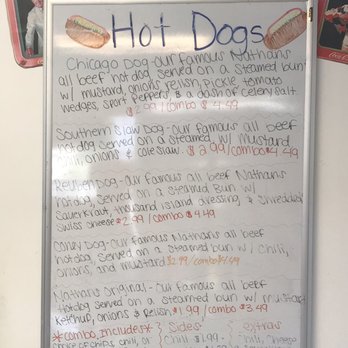 Hot Dogs
Chicago Dog-our famous Nathans
all beef hot dog served on a steamed bun
w/ mustard, onions, relish, pickle, tomato
wedges, sport peppers, & a dash of celery salt
$2.99/combo $4.49
Southern Slaw Dog-our famous all beef
hot dog served on a steamed w/ mustard
chili, onions & coleslaw $2.99/combo $4.49
Reuben Dog-our famous all beef Nathans
hotdog, served on a steamed bun w/
sauerkraut, thousand island dressing, & shredded
swiss cheese $2.99/combo $4.49
Coney Dog-our famous Nathans all beef
hotdog, served on a steamed bun w/ chili,
onions, and mustard $2.99/combo $4.49
Nathans Original-our famous all beef
hotdog served on a steamed bun w/ mustard
ketchup, onions & relish $1.99/combo $3.49
*combo includes* Sides extras
chips, chili, or chili $1.99 - chili, cheese